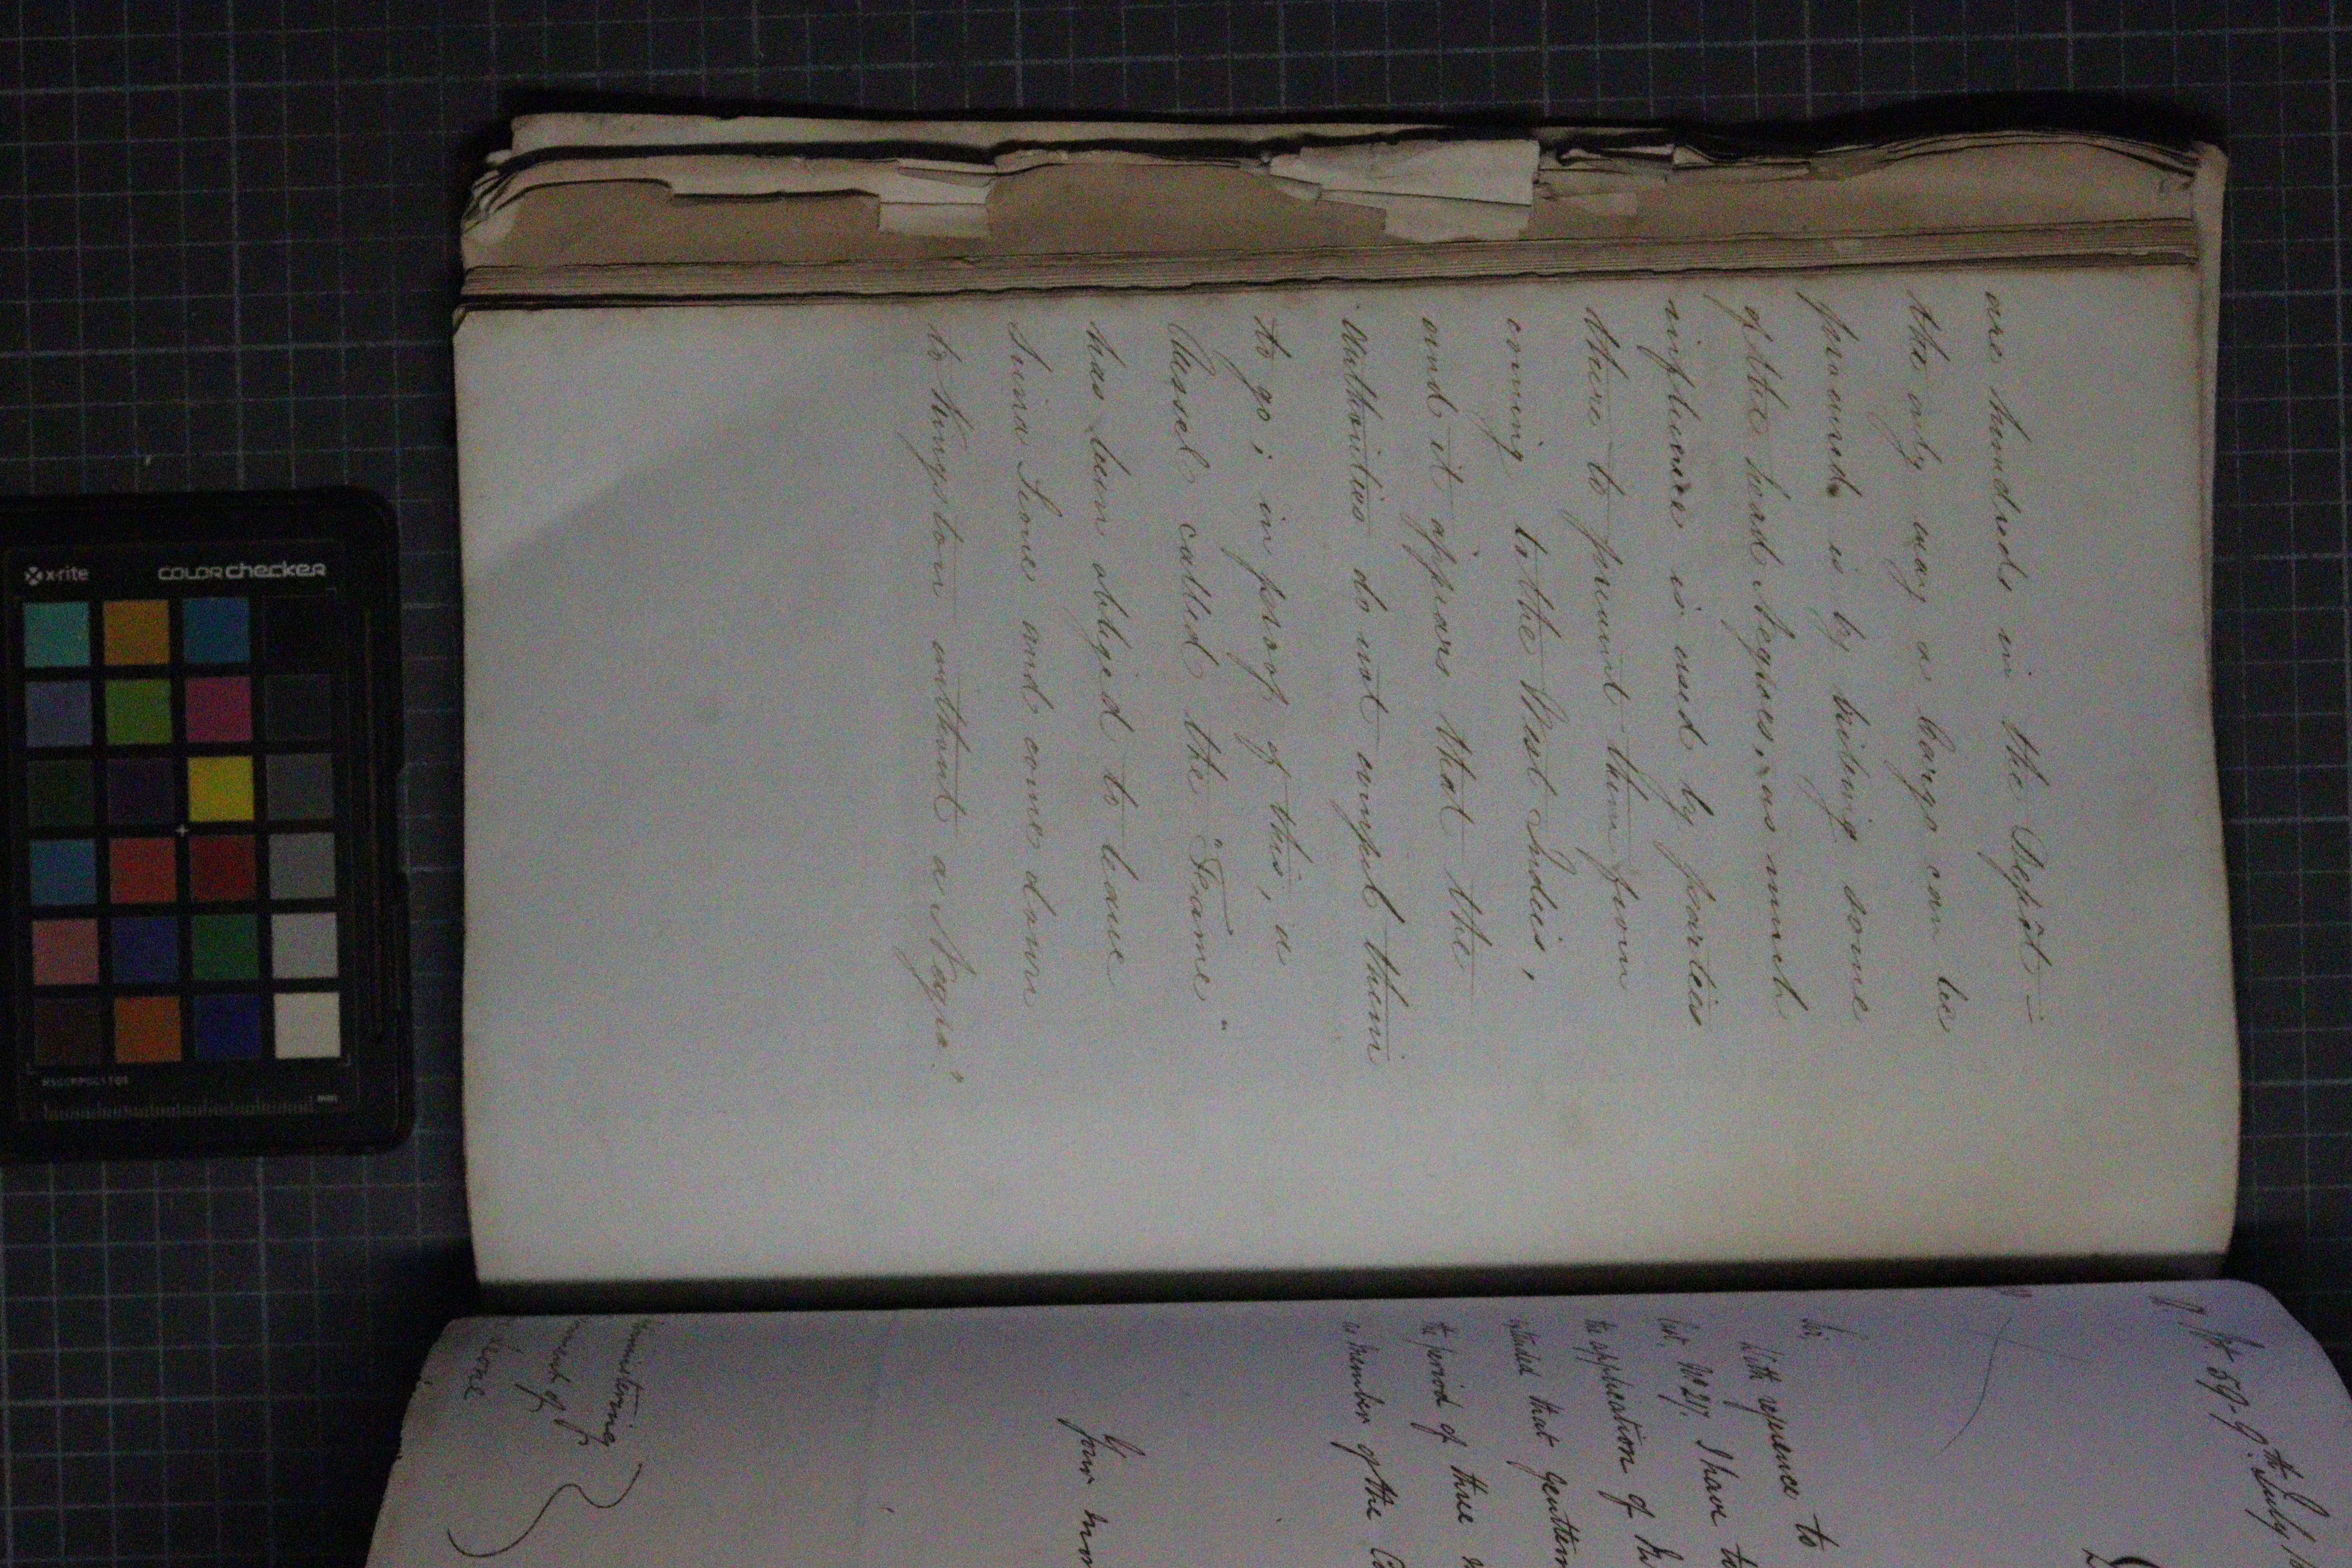 are hundreds in the Depôt —
the only way a Cargo can be
procured is by bribing some
of the head Negroes, as much
influence is used by parties
there to prevent them from
coming to the West Indies,
and it appears that the
Authorities do not compel them
to go; in proof of this, a
Vessel called the "Frame"
has been obliged to leave
Sierra Leone and come down
to Kingston without a Negro."
59. 9th July
Sir,
With reference to
last, No 217. I have to
the application of
stated that Gentlem
the period of three
a member of the
Your
ministering
ment of
Leone
x-rite
colorchecker